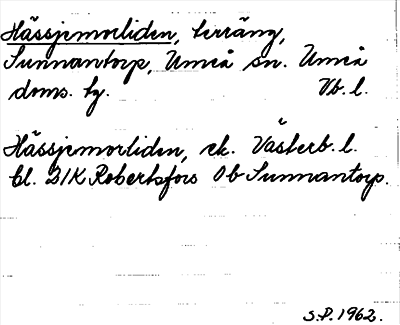 Hässjemorliden, terräng,
Sunnantorp, Umeå sn. Umeå
doms. tg. Vb. l.
Hässjemorliden, ek. Västerb. l.
bl. 21K Robertsfors Ob Sunnantorp.
S.P. 1962.